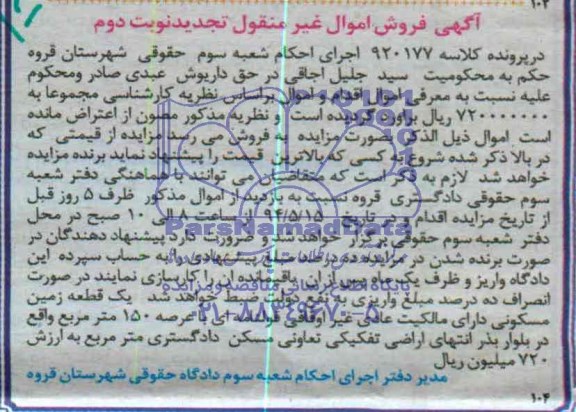 ۱۰۳
آگهی فروش اموال غیر منقول تجدیدنوبت دوم
درپرونده کلاسه ۹۲۰۱۷۷ اجرای احکام شعبه سوم حقوقی شهرستان قروه
حکم به محکومیت سید جلیل اجاقی در حق داریوش عبدی صادر ومحکوم
علیه نسبت به معرفی اموال اقدام و اموال براساس نظریه کارشناسی مجموعا به
۷۲۰۰۰۰۰۰۰ ریال براورد گردیده است و نظریه مذکور مصون از اعتراض مانده
است اموال ذیل الذکر بصورت مزایده به فروش می رسد مزایده از قیمتی که
در بالا ذکر شده شروع به کسی که بالاترین قسمت را پیشنهاد نماید برنده مزایده
خواهد شد لازم به ذکر است که متقاضیان می توانند با هماهنگی دفتر شعبه
سوم حقوقی دادگستری قروه نسبت به بازدید از اموال مذکور ظرف ۵ روز قبل
از تاریخ مزایده اقدام و در تاریخ ۹۴/۵/۱۵ از ساعت ۸ الی ۱۰ صبح در محل
دفتر شعبه سوم حقوقی برگزار خواهد شد و ضرورت دارد پیشنهاد دهندگان در
صورت برنده شدن در مزایده ده درصد مبلغ پیشنهادی را به حساب سپرده این
دادگاه واریز و ظرف یک ماه پس از ان باقیمانده ان را کارسازی نمایند در صورت
انصراف ده درصد مبلغ واریزی به نفع دولت ضبط خواهد شد یک قطعه زمین
مسکونی دارای مالکیت عادی غیر اوقافی قولنامه ای با عرصه ۱۵۰ متر مربع واقع
در بلوار بذر انتهای اراضی تفکیکی تعاونی مسکن دادگستری متر مربع به ارزش
۷۲۰ میلیون ریال
مدیر دفتر اجرای احکام شعبه سوم دادگاه حقوقی شهرستان قروه
۱۰۴
ParsNamadData
پایگاه اطلاع رسانی مناقصه و مزایده
۰۲۱-۸۸۳۴۹۶۷۰-۵